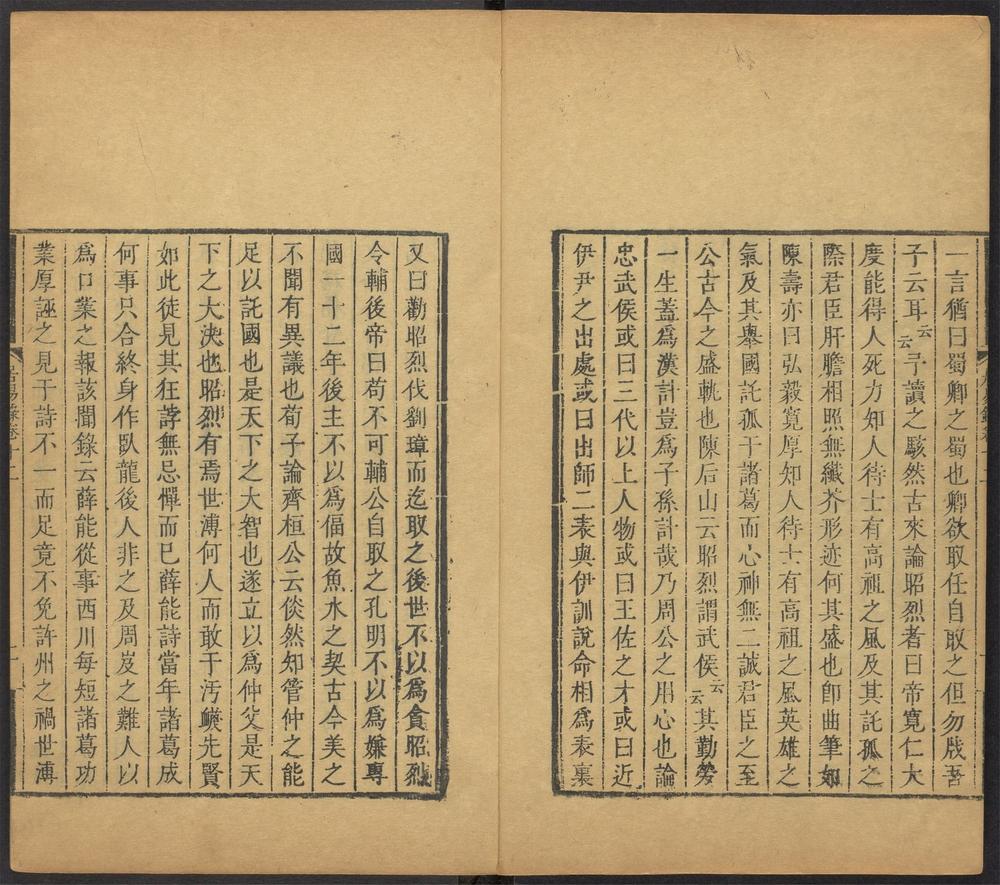 一言猶曰蜀卿之蜀也卿欲取任自取之但勿戕吾
子云耳云云予讀之駭然古來論昭烈者曰帝寬仁大
度能得人死力方知人待士有高祖之風及其託孤之
際君臣肝膽相照無纖芥形迹何其盛也卽曲筆如
陳壽亦曰弘毅寬厚知人待士有高祖之風英雄之
氣及其舉國託孤于諸葛而心神無二誠君臣之至
公古今之盛軌也陳后山云昭烈謂武侯云云其勤勞
一生蓋爲漢計豈爲子孫計哉乃周公之用心也論
忠武侯或曰三代以上人物或曰王佐之才或曰近
伊尹之出處或曰出師二表與伊訓說命相爲表裏
又曰勸昭烈伐劉璋而迄取之後世不以爲貪昭烈
令輔後帝曰苟不可輔公自取之孔明不以爲嫌專
國一十二年後主不以爲偪故魚水之契古今美之
不聞有異議也荀子論齊桓公云倓然知管仲之能
足以託國也是天下之大智也遂立以爲仲父是天
下之大決也昭烈有焉世溥何人而敢于汚衊先賢
如此徒見其狂誖無忌憚而已薛能詩當年諸葛成
何事只合終身作臥龍後人非之及周岌之難人以
爲口業之報該聞錄云薛能從事西川每短諸葛功
業厚誣之見于詩不一而足竟不免許州之禍世溥
居易錄卷十二